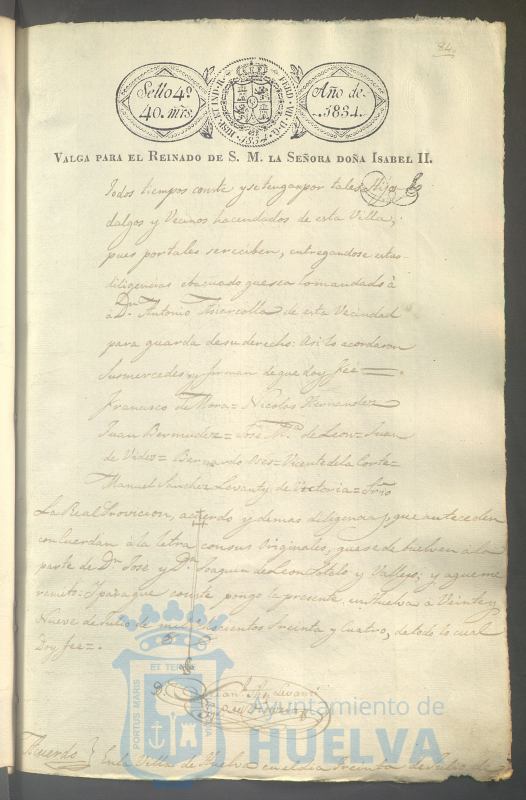 84.
Sello 4º
40. mrs.
HISP. ET IND. R. FERD. VII. D. G.
1834
Año de
1834.
VALGA PARA EL REINADO DE S. M. LA SEÑORA DOÑA ISABEL II.
todos tiempos conste y se tengan por tales Hijos
dalgos y Vecinos hacendados de esta Villa,
pues por tales se reciben, entregandose estas
diligencias evacuado que sea lo mandado à
Dn. Antonio de esta Vecindad
para guarda de su derecho: Asi lo acordaron
sus mercedes y firman de que doy fee =
Francisco de Mora = Nicolas Hernandez
Juan Bermudez = José Ma. de Leon = Juan
de = Bernardo = Vicente de la Corte =
Manuel Sanchez Levanty de Victoria = Srio
La Real Provicion, acuerdo y demas diligencias, que anteceden
concuerdan à la letra con sus Originales, que se debuelven a la
parte de Dn. José y Dn. Joaquin de Leon Sotelo y Vallejo, y a que me
remito: Y para que conste pongo la presente en Huelva à Veinte y
Nueve de Julio de mil ochocientos treinta y cuatro, de todo lo cual
Doy fee =.
Acuerdo } En la Villa de Huelva en el dia treinta de Julio de
PORTUS MARIS ET TERRAE
Ayuntamiento de
HUELVA